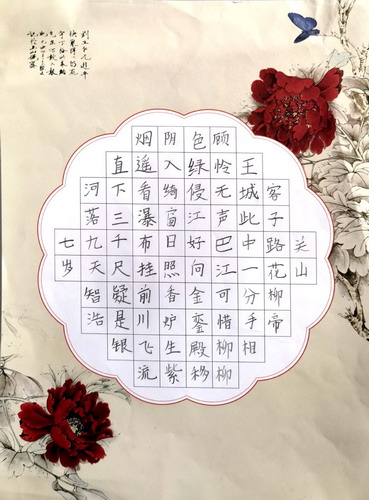 关山
客子路花柳帝
王城此中一分手相
顾怜无声巴江可惜柳柳
色绿侵江好问金銮殿移
阴入绮窗日照香炉生紫
烟遥看瀑布挂前川飞流
直下三千尺疑是银
河落九天智浩
七岁